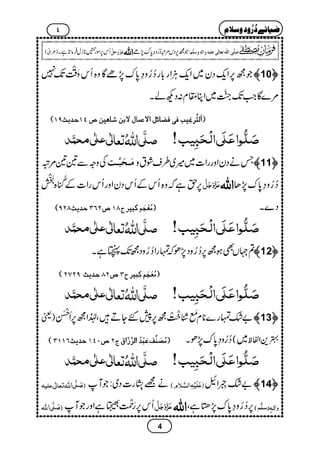 ٤ ضیائے دُرُود وسلام
فرمانِ مصطفےٰ صلی اللہ تعالٰی علیہ واٰلہٖ وسلم: جو مجھ پر دس مرتبہ دُرُودِ پاک پڑھے اللہ عزوجل اُس پر سو رحمتیں نازل فرماتا ہے۔ (طبرانی)
﴿10﴾ جو مجھ پر ایک دن میں ایک ہزار بار دُرُودِ پاک پڑھے گا وہ اُس وقت تک نہیں
مرے گا جب تک جنّت میں اپنا مقام نہ دیکھ لے۔
(اَلتَّرغِیب فی فضائل الاعمال لابن شاھین ص ١٤ حدیث١٩)
صَلُّوا عَلَی الْحَبِیب ! صلَّی اللہُ تعالٰی علٰی محمَّد
﴿11﴾ جس نے دن اور رات میں میری طرف شوق و مَحَبَّت کی وجہ سے تین تین مرتبہ
دُرُودِ پاک پڑھا اللہ عَزَّوَجَلَّ پر حق ہے کہ وہ اُس کے اُس دن اور اُس رات کے گناہ بخش
دے۔ (مُعْجَم کبیر ج١٨ ص٣٦٢ حدیث٩٢٨)
صَلُّوا عَلَی الْحَبِیب ! صلَّی اللہُ تعالٰی علٰی محمَّد
﴿12﴾ تم جہاں بھی ہو مجھ پر دُرُود پڑھو کہ تمہارا دُرُود مجھ تک پہنچتا ہے۔
(مُعْجَم کبیر ج٣ ص٨٢ حدیث ٢٧٢٩)
صَلُّوا عَلَی الْحَبِیب ! صلَّی اللہُ تعالٰی علٰی محمَّد
﴿13﴾ بے شک تمہارے نام مع شناخت مجھ پر پیش کئے جاتے ہیں، لہٰذا مجھ پر اَحْسَن (یعنی
بہترین الفاظ میں) دُرُودِ پاک پڑھو۔ (مُصَنَّف عَبدُ الرَّزَّاق ج٢ ص١٤٠ حدیث٣١١٦)
صَلُّوا عَلَی الْحَبِیب ! صلَّی اللہُ تعالٰی علٰی محمَّد
﴿14﴾ بے شک جبرائیل (عَلَیْہِ السَّلَام) نے مجھے بشارت دی: جو آپ (صَلَّی اللہُ تَعَالٰی علیہ
واٰلہٖ وسلَّم) پر دُرُودِ پاک پڑھتا ہے، اللہ عَزَّوَجَلَّ اُس پر رحمت بھیجتا ہے اور جو آپ (صَلَّی اللہُ
4